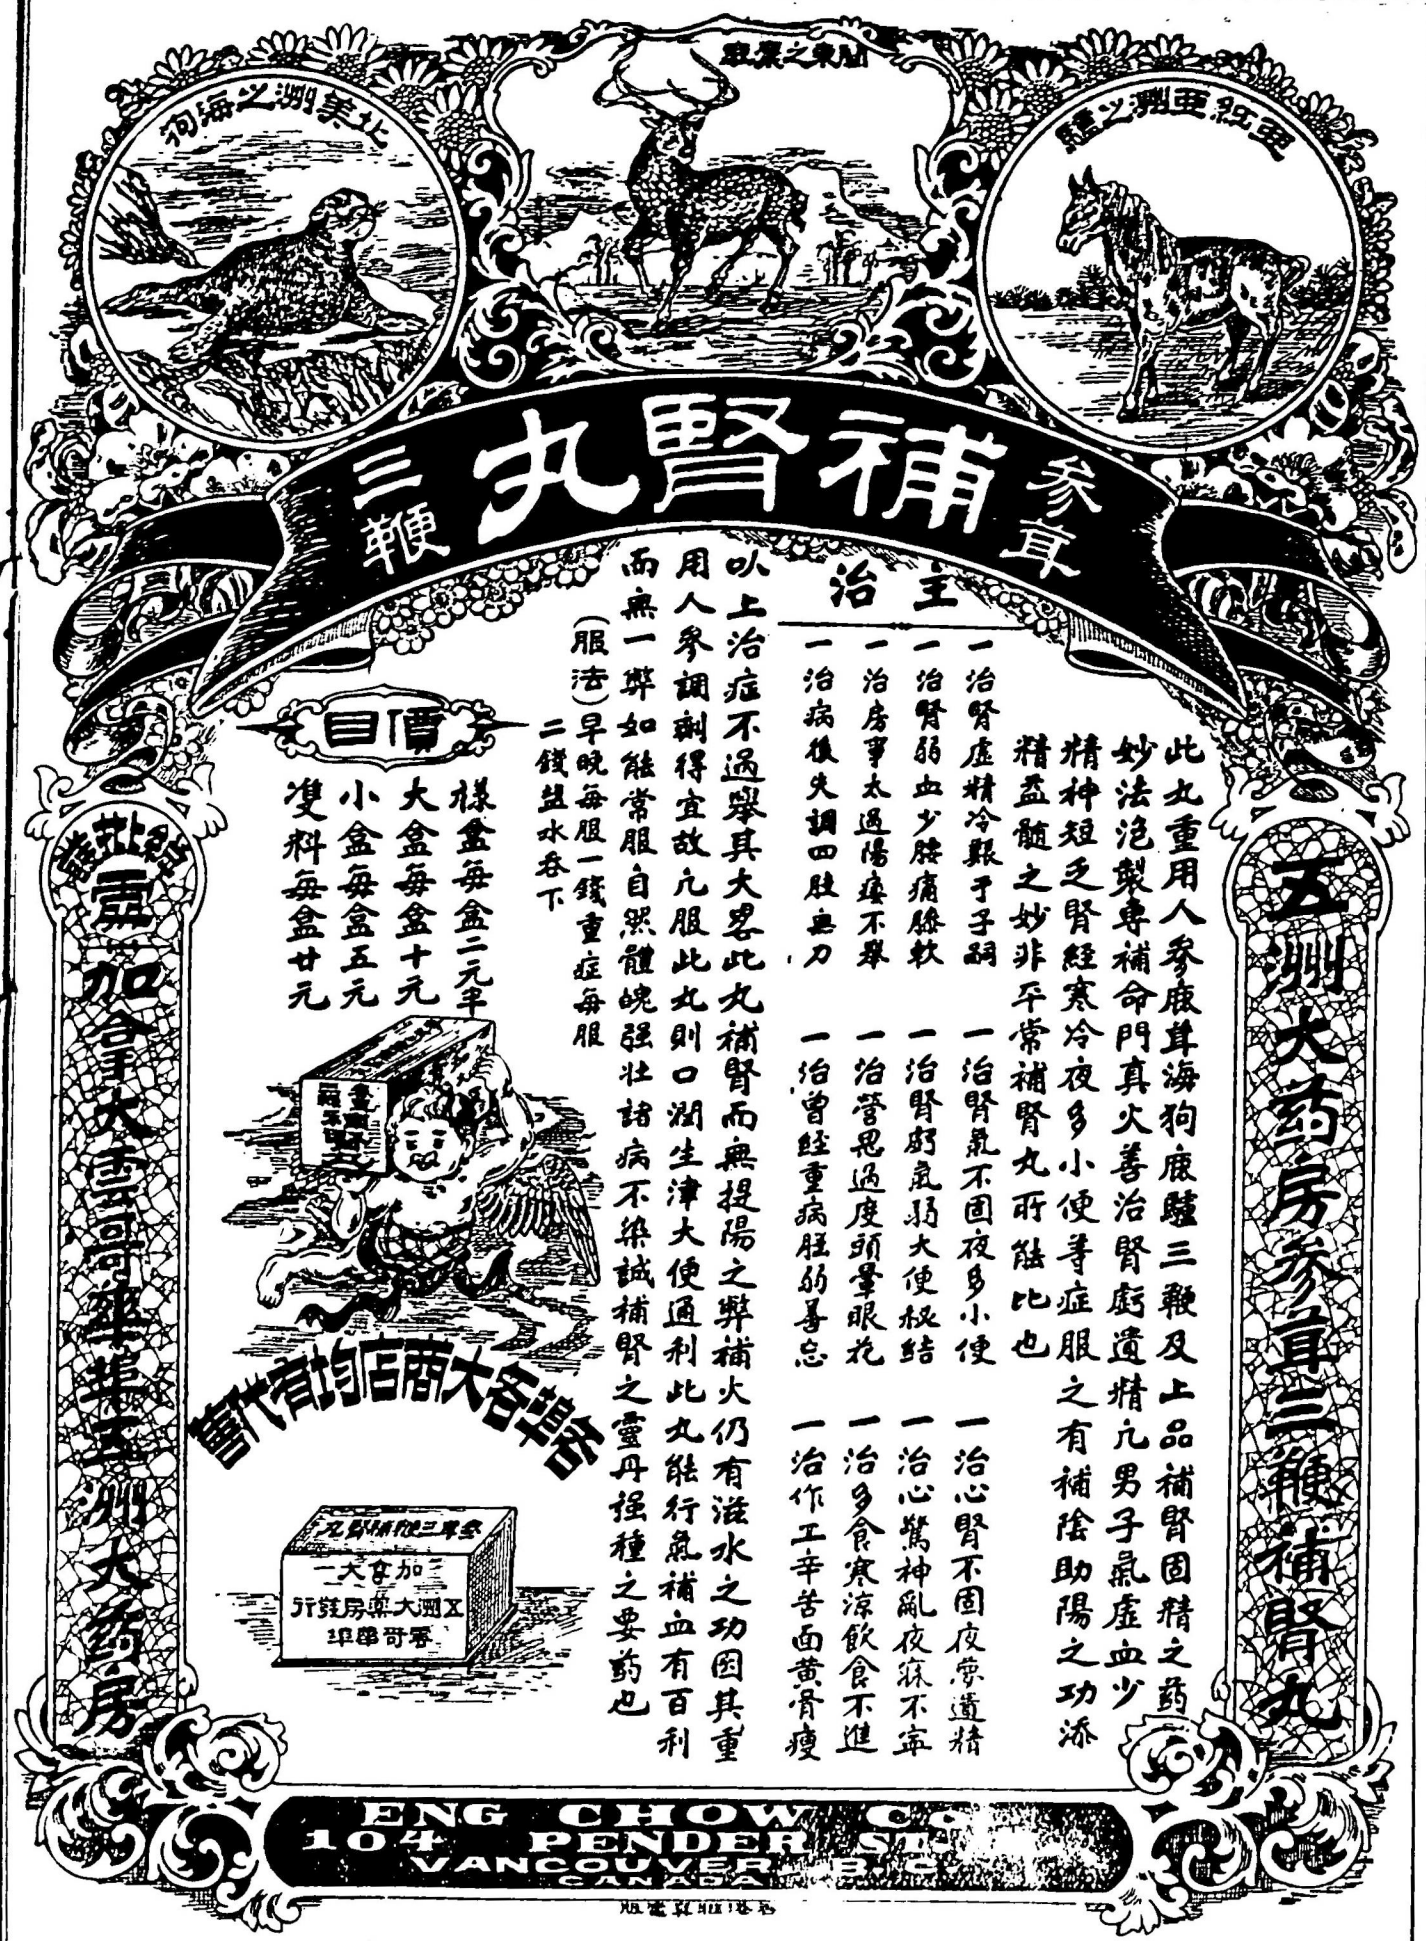 北美洲之海狗
關東之鹿
亞細亞洲之驢
參茸
補腎丸
三鞭
五洲大药房參茸三鞭補腎丸
此丸重用人參鹿茸海狗鹿驢三鞭及上品補腎固精之药
妙法泡製專補命門真火善治腎虧遺精凢男子氣虛血少
精神短乏腎經寒冷夜多小便等症服之有補陰助陽之功添
精益髓之妙非平常補腎丸所能比也
主治
一治腎虛精冷艱于子嗣
一治腎氣不固夜多小便
一治心腎不固夜夢遺精
一治腎弱血少腰痛膝軟
一治腎虧氣弱大便秘結
一治心驚神亂夜寐不寧
一治房事太過陽痿不舉
一治營思過度頭暈眼花
一治多食寒涼飲食不進
一治病後失調四肢無力
一治曾經重病胆弱善忘
一治作工辛苦面黄骨瘦
以上治症不過舉其大畧此丸補腎而無提陽之弊補火仍有滋水之功因其重
用人參調劑得宜故凢服此丸則口潤生津大便通利此丸能行氣補血有百利
而無一弊如能常服自然體魄强壮諸病不染誠補腎之靈丹强種之要药也
(服法)早晚每服一錢重症每服
二錢盐水吞下
價目
樣盒每盒二元半
大盒每盒十元
小盒每盒五元
雙料每盒廿元
各埠各大商店均有代售
參茸三鞭補腎丸
加拿大
五洲大藥房發行
雲哥華埠
加拿大雲哥華埠五洲大药房
ENG CHOW Co
104 PENDER ST.
VANCOUVER B.C.
CANADA